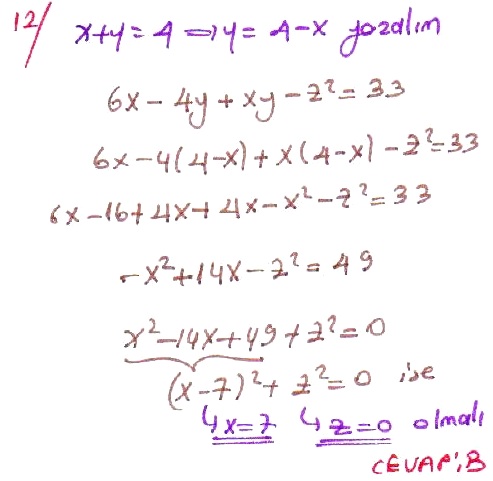 12/ x+y=4 ⇒ y= 4-x yazalım
6x-4y+xy-z²=33
6x-4(4-x)+x(4-x)-z²=33
6x-16+4x+4x-x²-z²=33
-x²+14x-z²=49
x²-14x+49+z²=0
(x-7)²+z²=0 ise
↳x=7 ↳z=0 olmalı
CEVAP:B